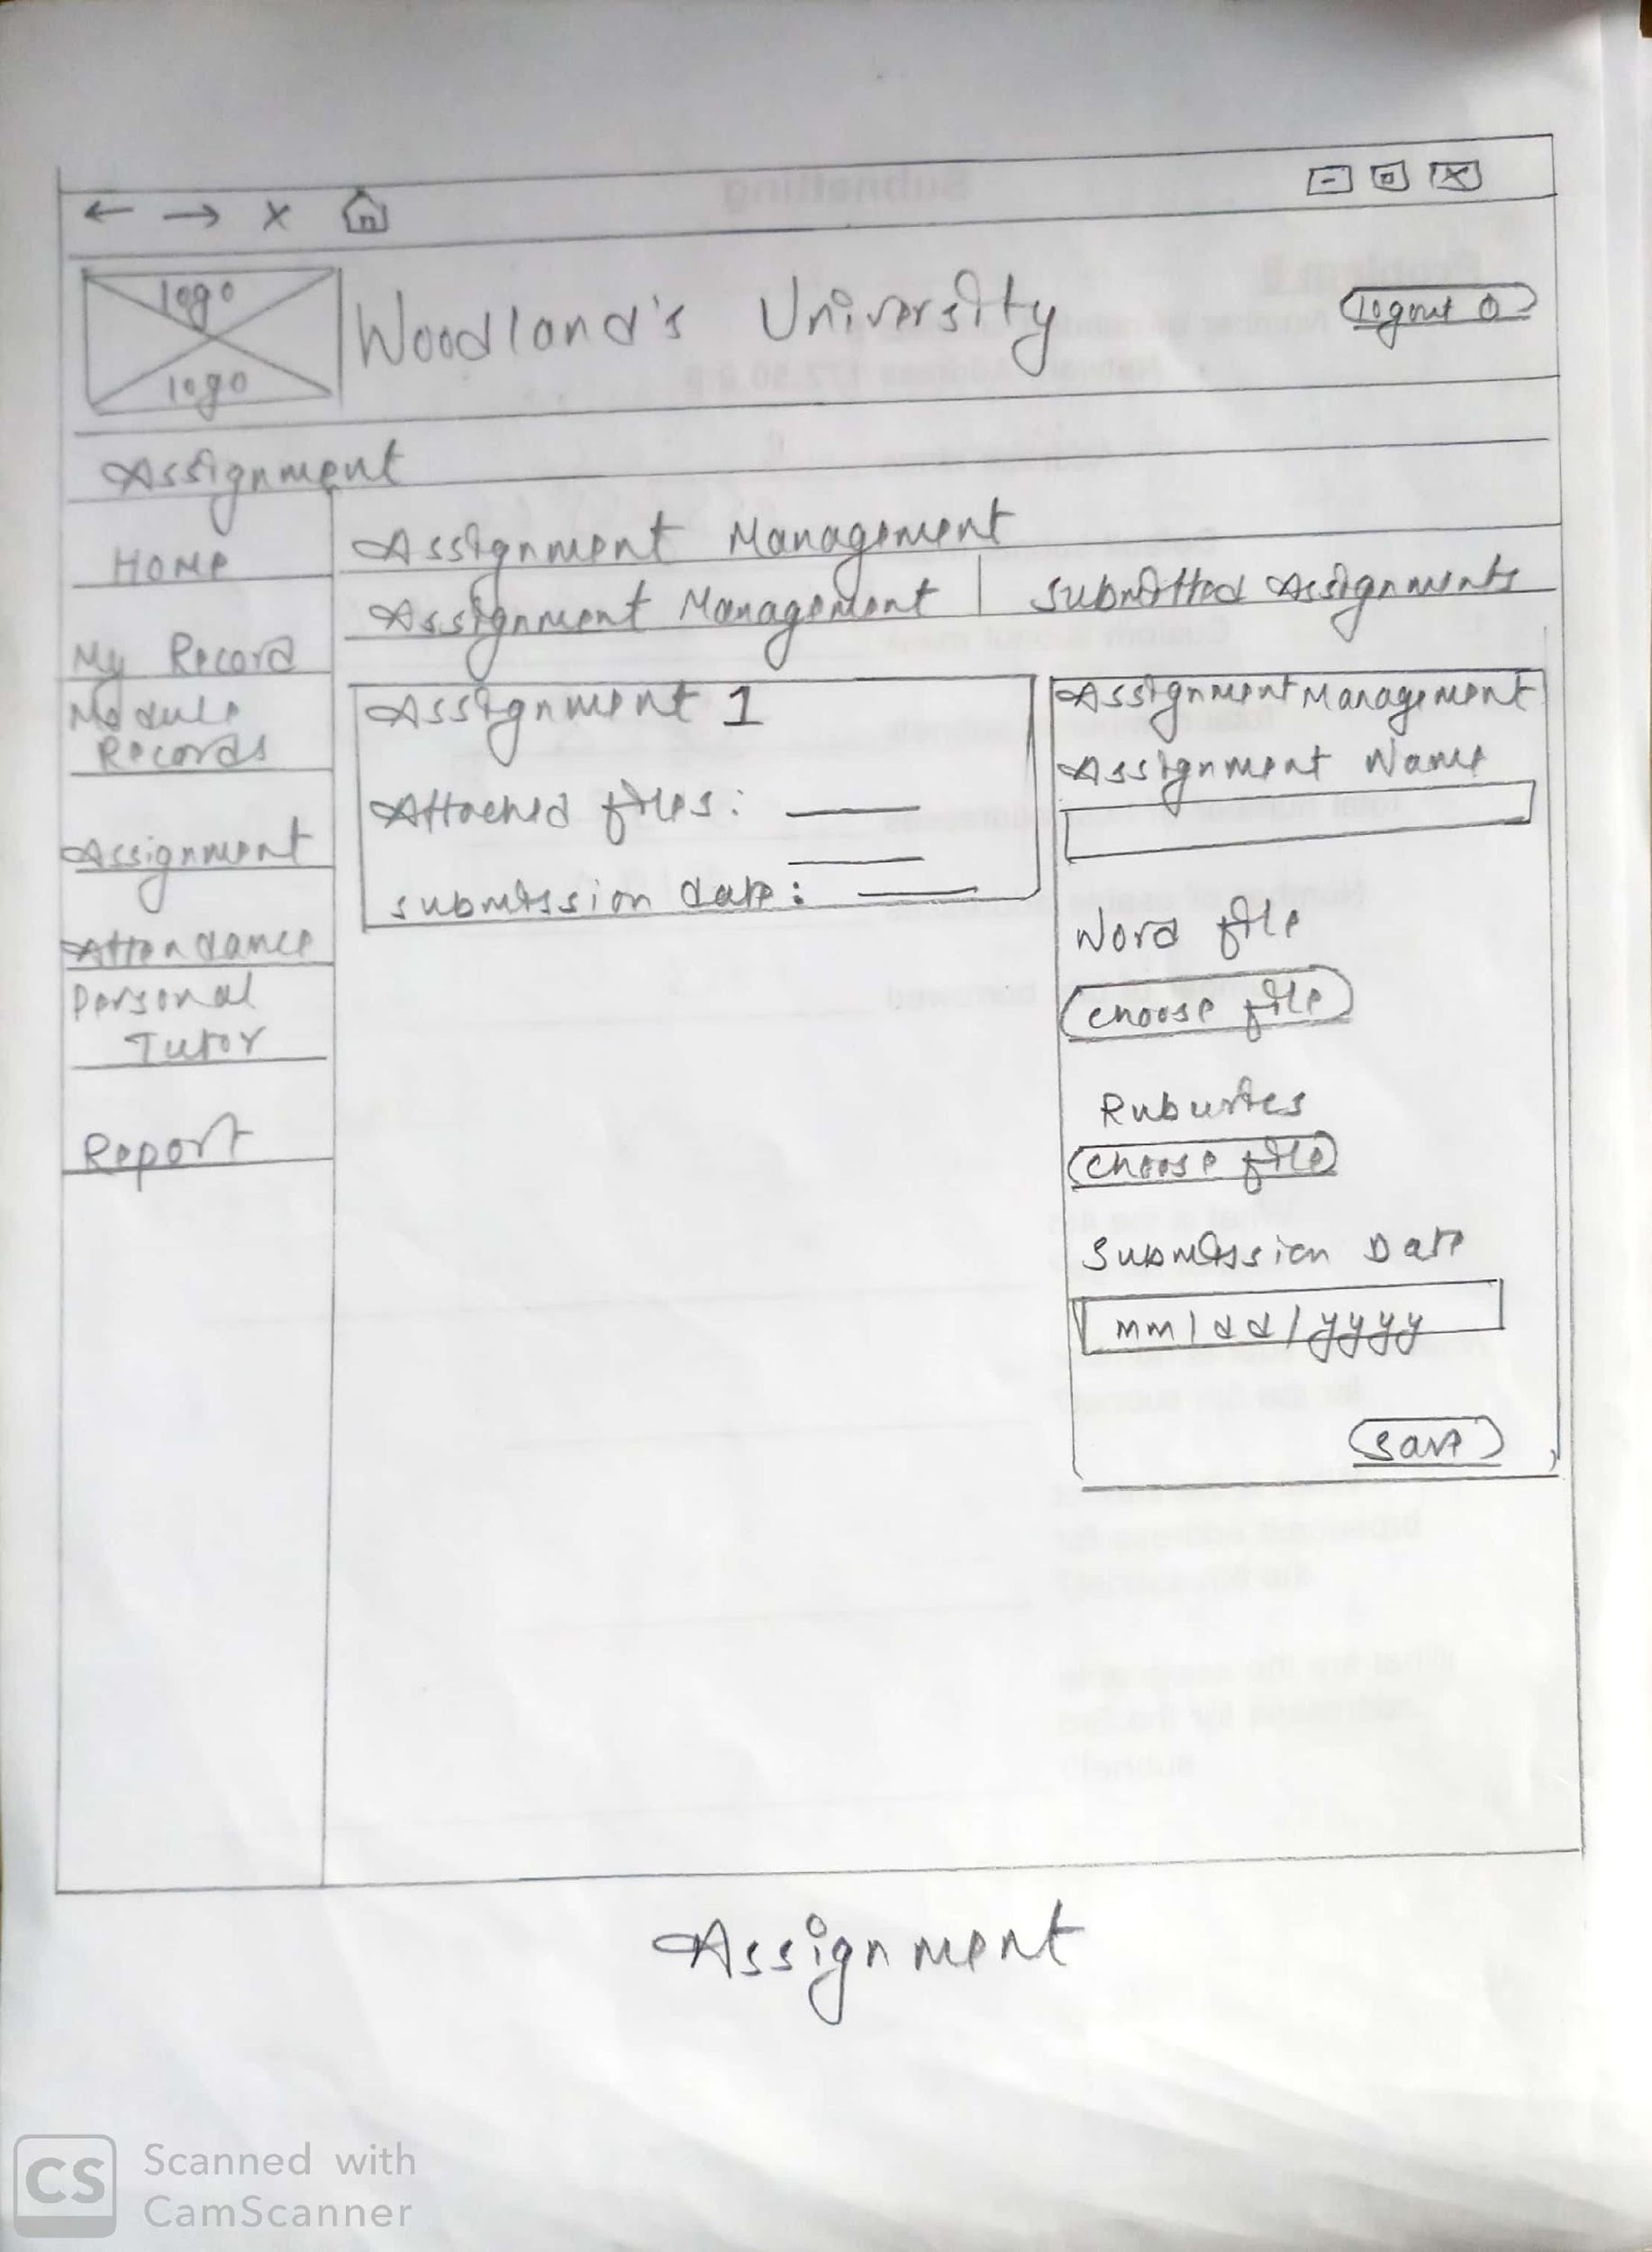 logo
logo
Woodland's University
logout
Assignment
HOME
My Record
Module
Records
Assignment
Attendance
Personal
Tutor
Report
Assignment Management
Assignment Management | Submitted Assignments
Assignment 1
Attached files:
submission date:
Assignment Management
Assignment Name
Word file
choose file
choose file
Submission Date
mm/dd/yyyy
Save
Assignment
CS
Scanned with
CamScanner